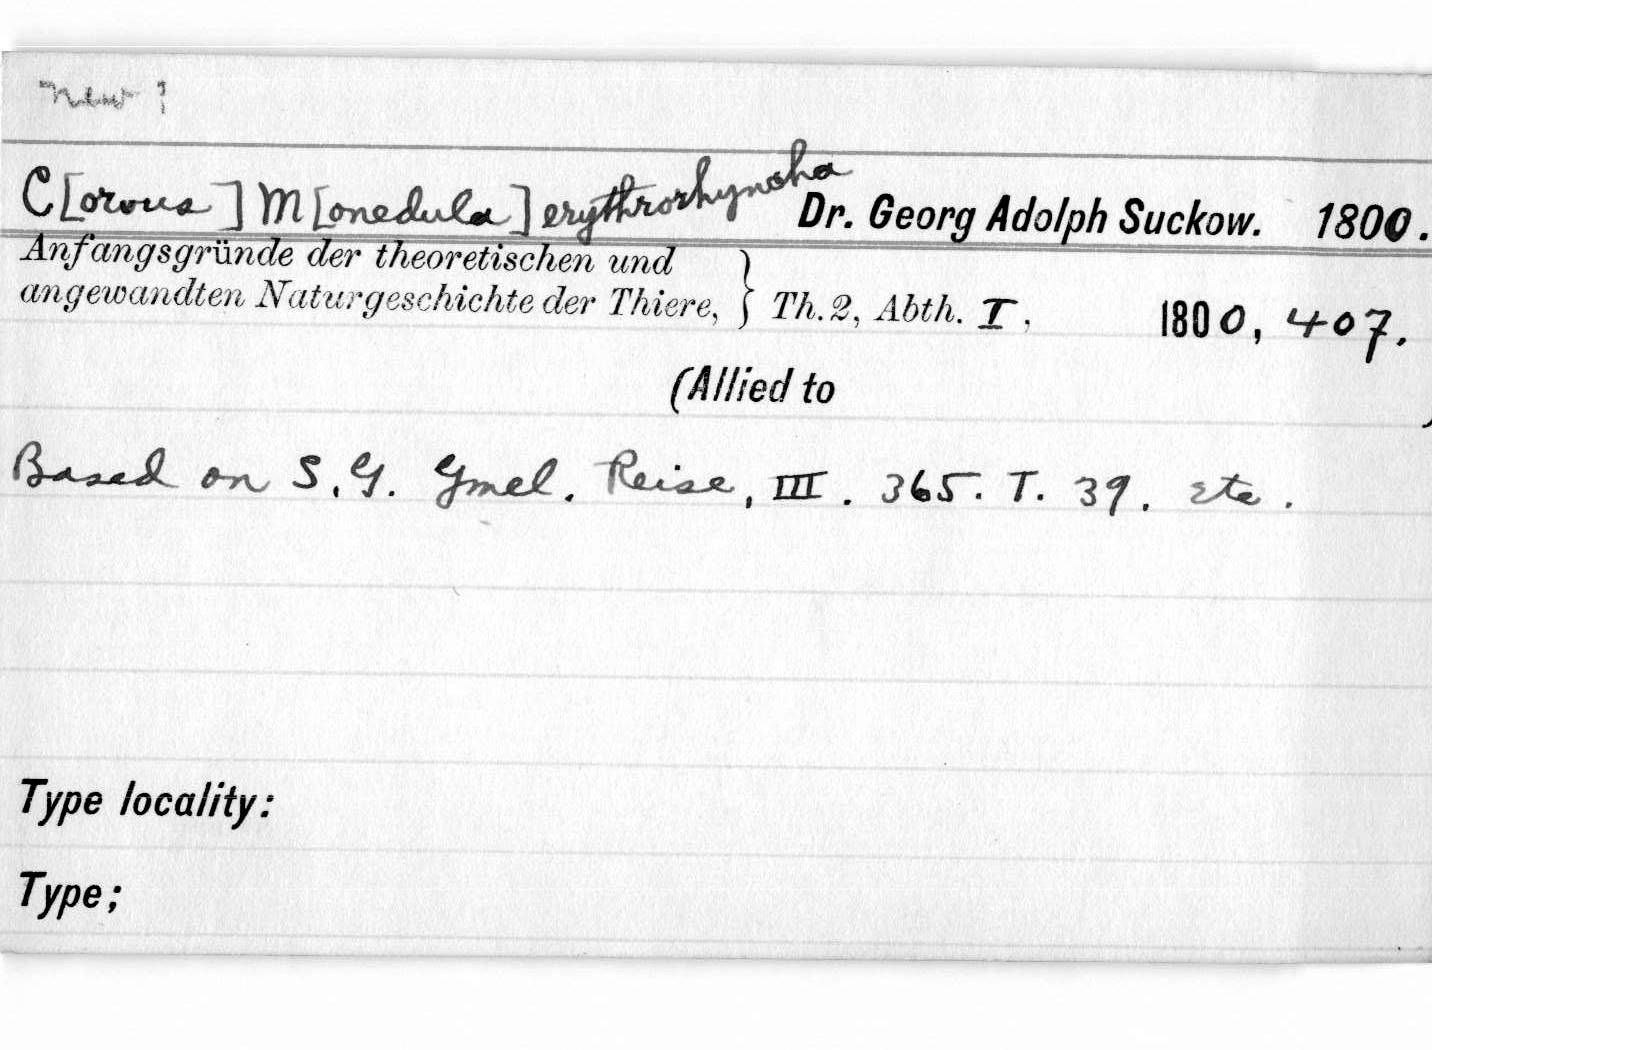 New ?
C[orvus] M[onedula] erythrorhyncha Dr. Georg Adolph Suckow. 1800.
Anfangsgründe der theoretischen und
angewandten Naturgeschichte der Thiere, } Th. 2, Abth. I, 1800, 407.
(Allied to )
Based on S. G. Gmel. Reise, III. 365. T. 39. etc.
Type locality:
Type;